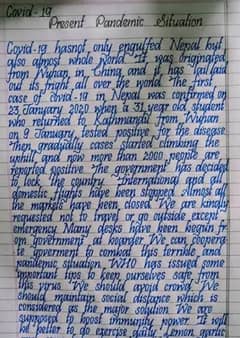 Covid-19
Present Pandemic Situation
Covid-19 hasnot only engulfed Nepal but
also almost whole world. It was originated
from Wuhan, in China, and it has laid
out its fright all over the world. The first
case of covid-19 in Nepal was confirmed on
23 January 2020 when a 31 year old student
who returned to Kathmandu from Wuhan
on 9 January, tested positive for the disease.
Then gradually cases started climbing the
uphill and now more than 2000 people are
reported positive. The government has decided
to lock the country. International and all
domestic flights have been stopped. Almost all
the markets have been closed. We are kindly
requested not to travel or go outside except
emergency. Many desks have been begun fr
om government at boarder. We can coopera-
te goverment to combat this terrible and
pandemic situation. WHO has issued some
important tips to keep ourselves safe from
this virus. We should avoid crowd. We
should maintain social distance which is
considered as the major solution. We are
supposed to boost immunity power. It will
be better to go exercise daily. Lemon, garlic